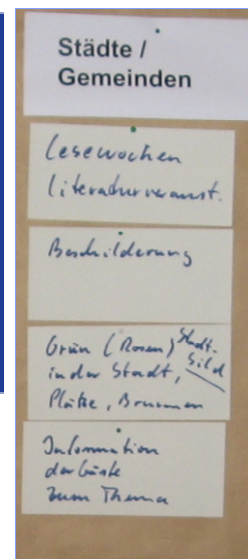 Städte /
Gemeinden
Lesewochen
Literaturveranst.
Beschilderung
Grün (Rosen) Stadt-
in der Stadt, bild
Plätze, Brunnen
Information
der Gäste
zum Thema